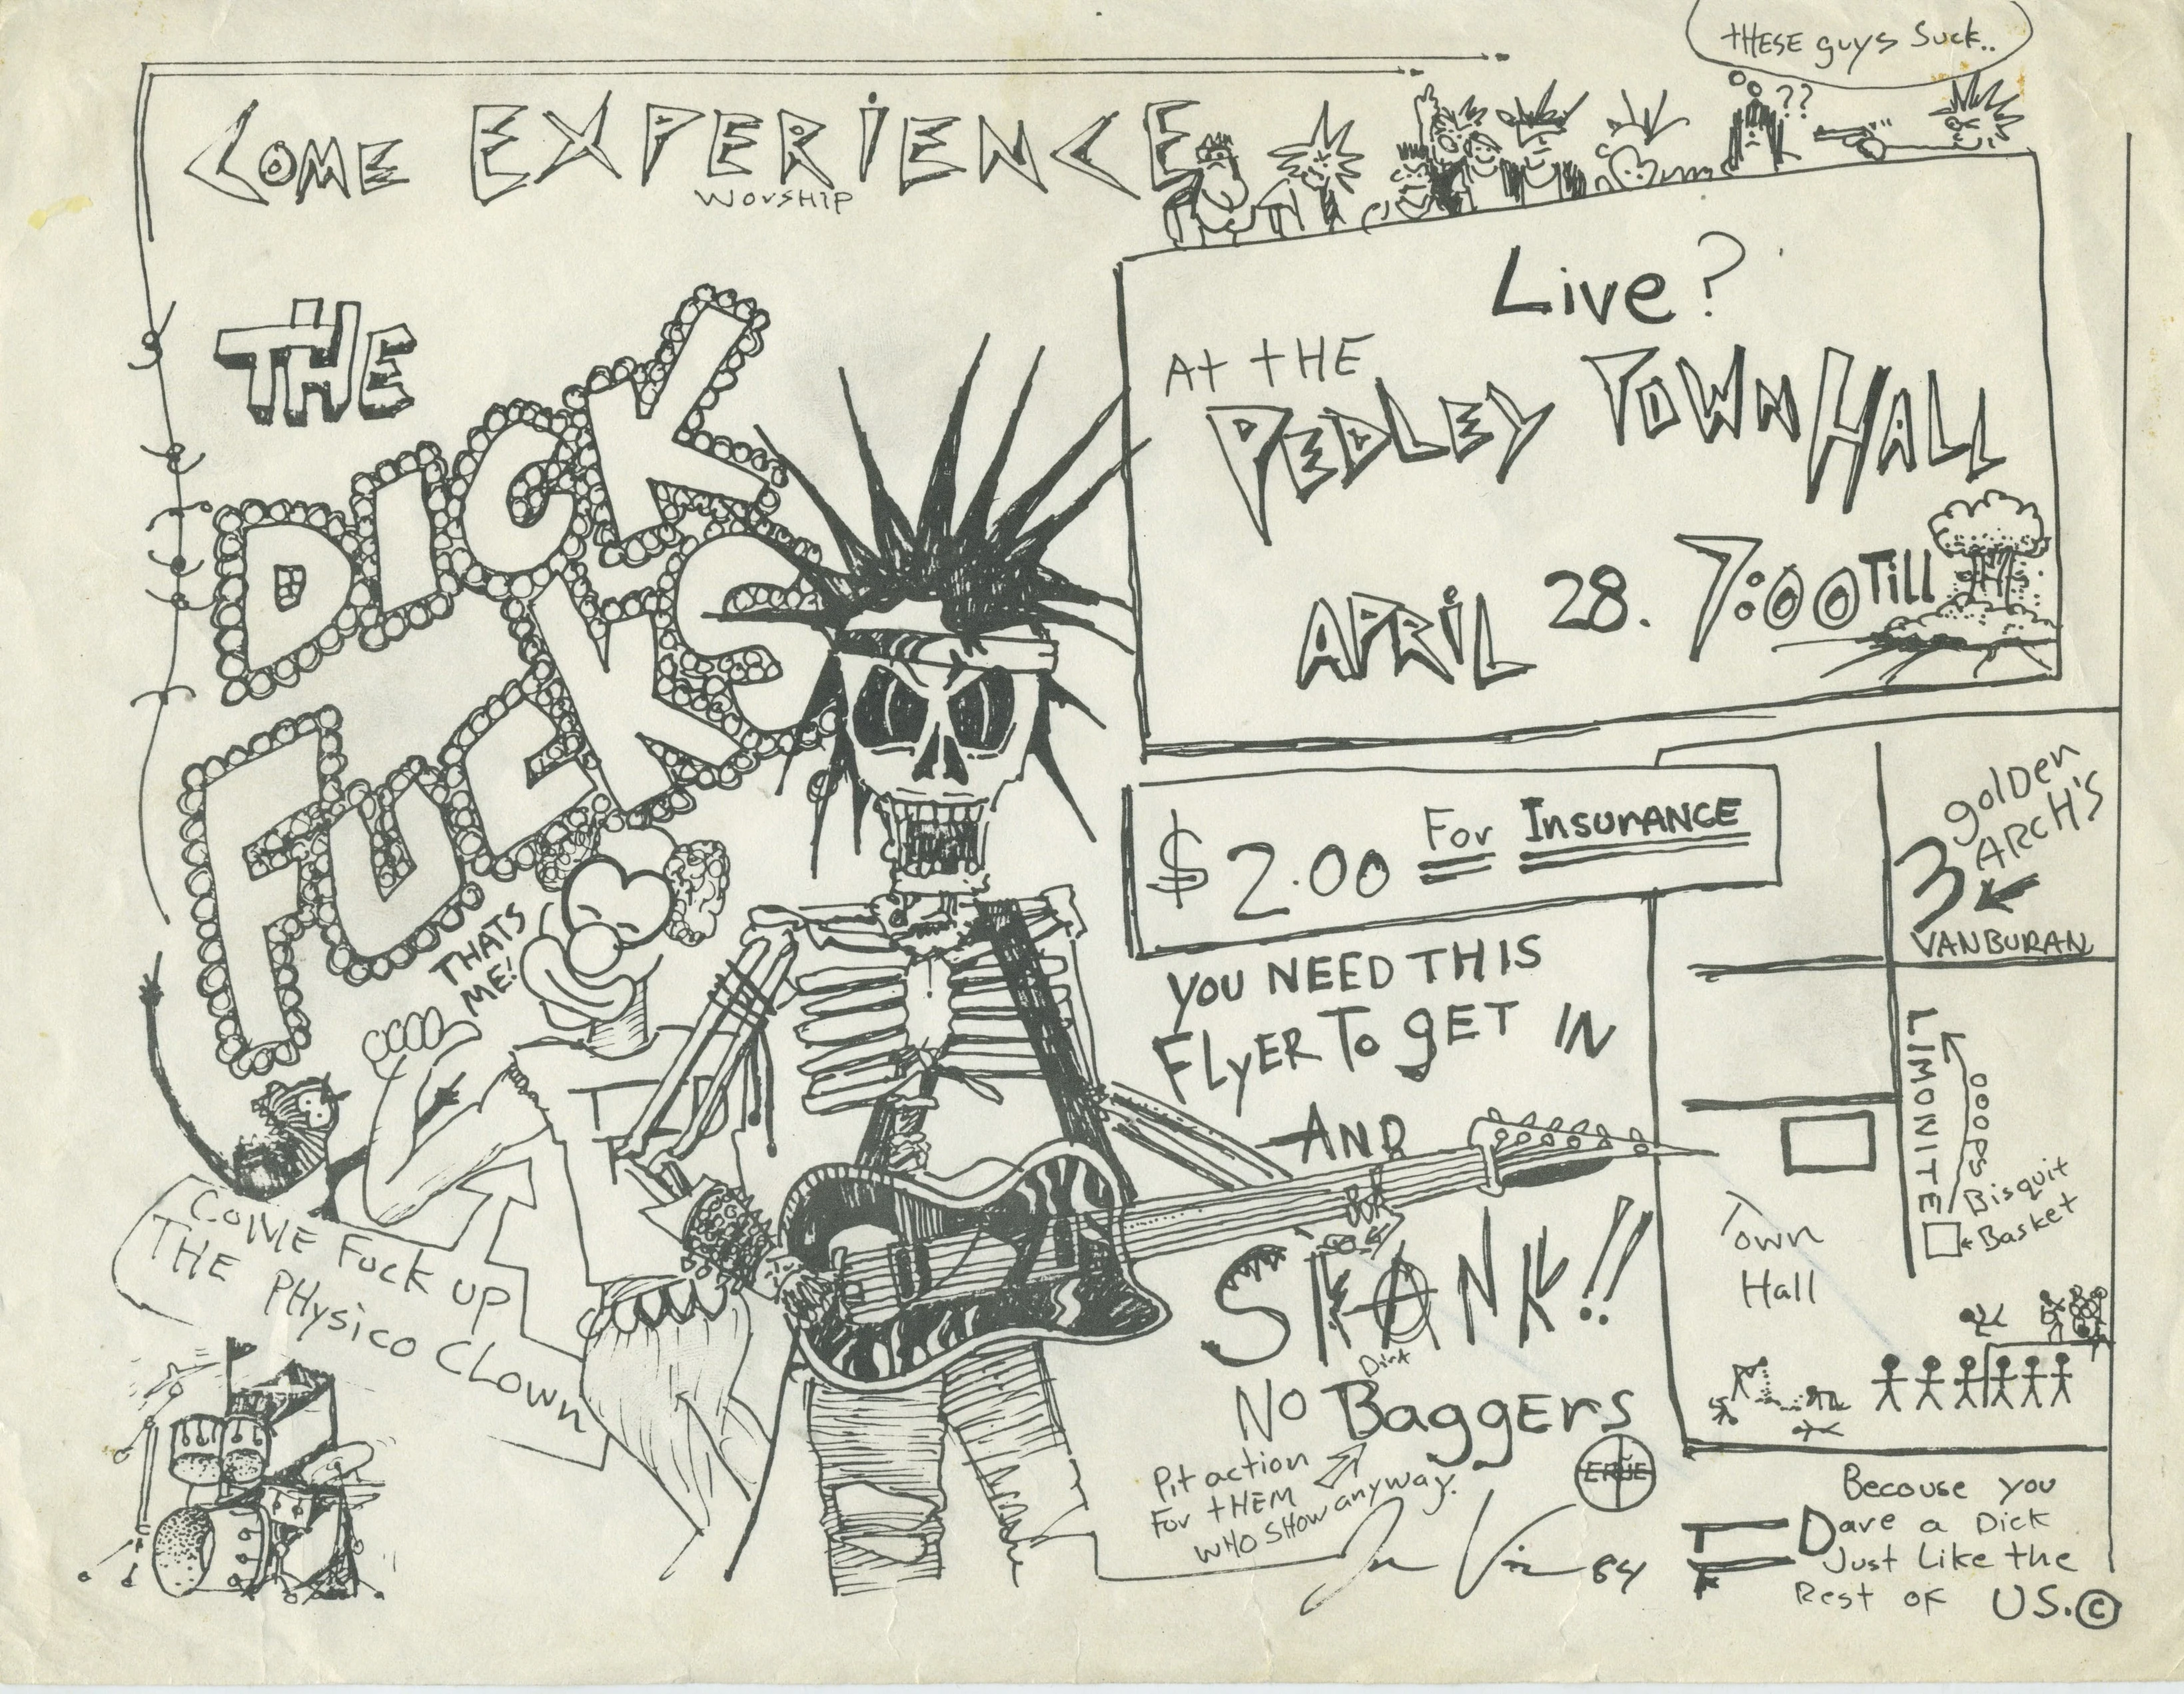 THESE guys Suck..
??
COME EXPERIENCE
WorSHIP
THE
DICK
FUCKS
Live?
At tHE
PEDLEY TOWN HALL
APRIL 28. 7:00 Till
$2.00 For InsurANCE
THATS
ME!
YOU NEED THIS
FLyER To gET IN
AND
SKANK!!
No Dirt BaggErs
Pit action
For tHEM
WHO SHOW anyway.
COME Fuck up
THE PHysico Clown
golDen
ARCH'S
VANBURAN
LIMONITE
OOOPS
Bisquit
Basket
Town
Hall
84
Becouse you
Dave a Dick
Just Like the
Rest of US.©